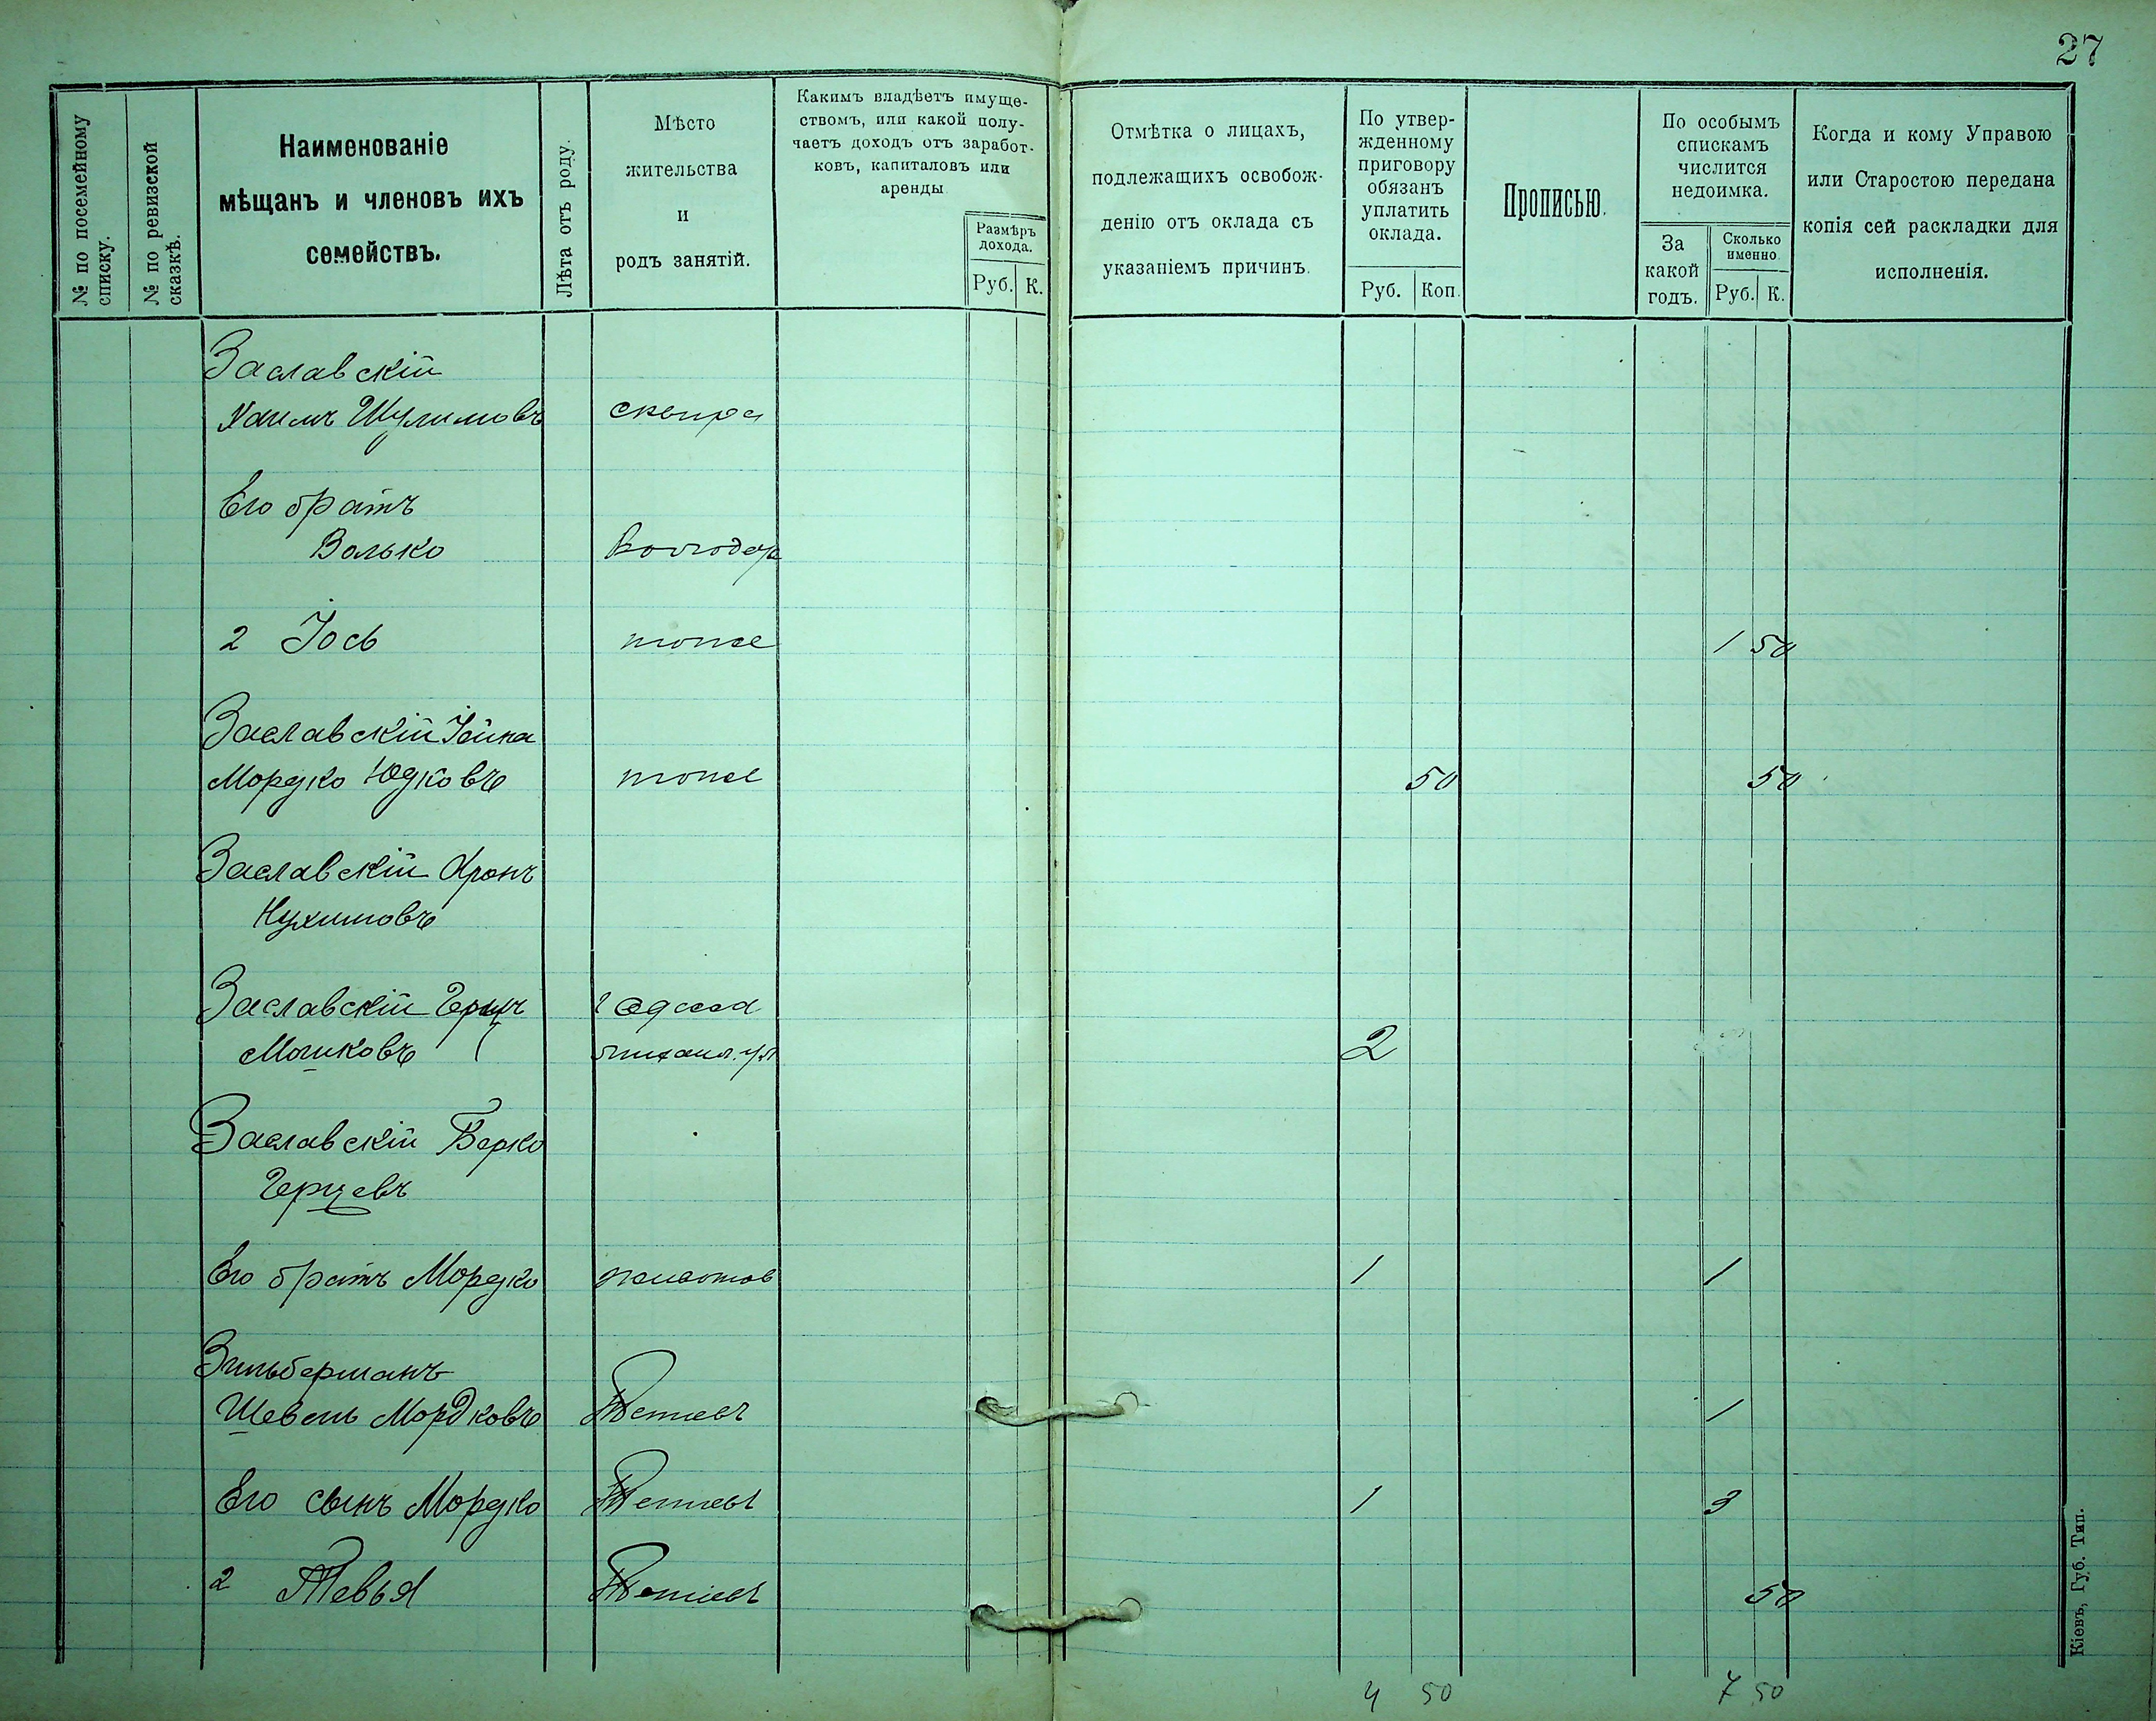 27
№ по посемейному
списку.
№ по ревизской
сказкѣ.
Наименованіе
мѣщанъ и членовъ ихъ
семействъ.
Лѣта отъ роду.
Мѣсто
жительства
и
родъ занятій.
Какимъ владѣетъ имуще-
ствомъ, или какой полу-
чаетъ доходъ отъ заработ-
ковъ, капиталовъ или
аренды
Размѣръ
дохода.
Руб. К.
Отмѣтка о лицахъ,
подлежащихъ освобож-
денію отъ оклада съ
указаніемъ причинъ.
По утвер-
жденному
приговору
обязанъ
уплатить
оклада.
Руб. Коп.
Прописью.
По особымъ
спискамъ
числится
недоимка.
За
какой
годъ.
Сколько
именно.
Руб. К.
Когда и кому Управою
или Старостою передана
копія сей раскладки для
исполненія.
Заславскій
Хаимъ Шулимовъ сквира
Его братъ
Волько Володар
2 Іось тоже 1 50
Заславскій Іойна
Мордко Юдковъ тоже 50 50
Заславскій Аронъ
Нухимовъ
Заславскій Герцъ г Одесса
Мошковъ 2
Заславскій Берко
Герцевъ
Его братъ Мордко животов 1 1
Зильберманъ
Шевель Мордковъ Тетіевъ 1
Его сынъ Мордко Тетіевъ 1 3
2 Тевья Тетіевъ 50
4 50 7 50
Кіевъ, Губ. Тип.